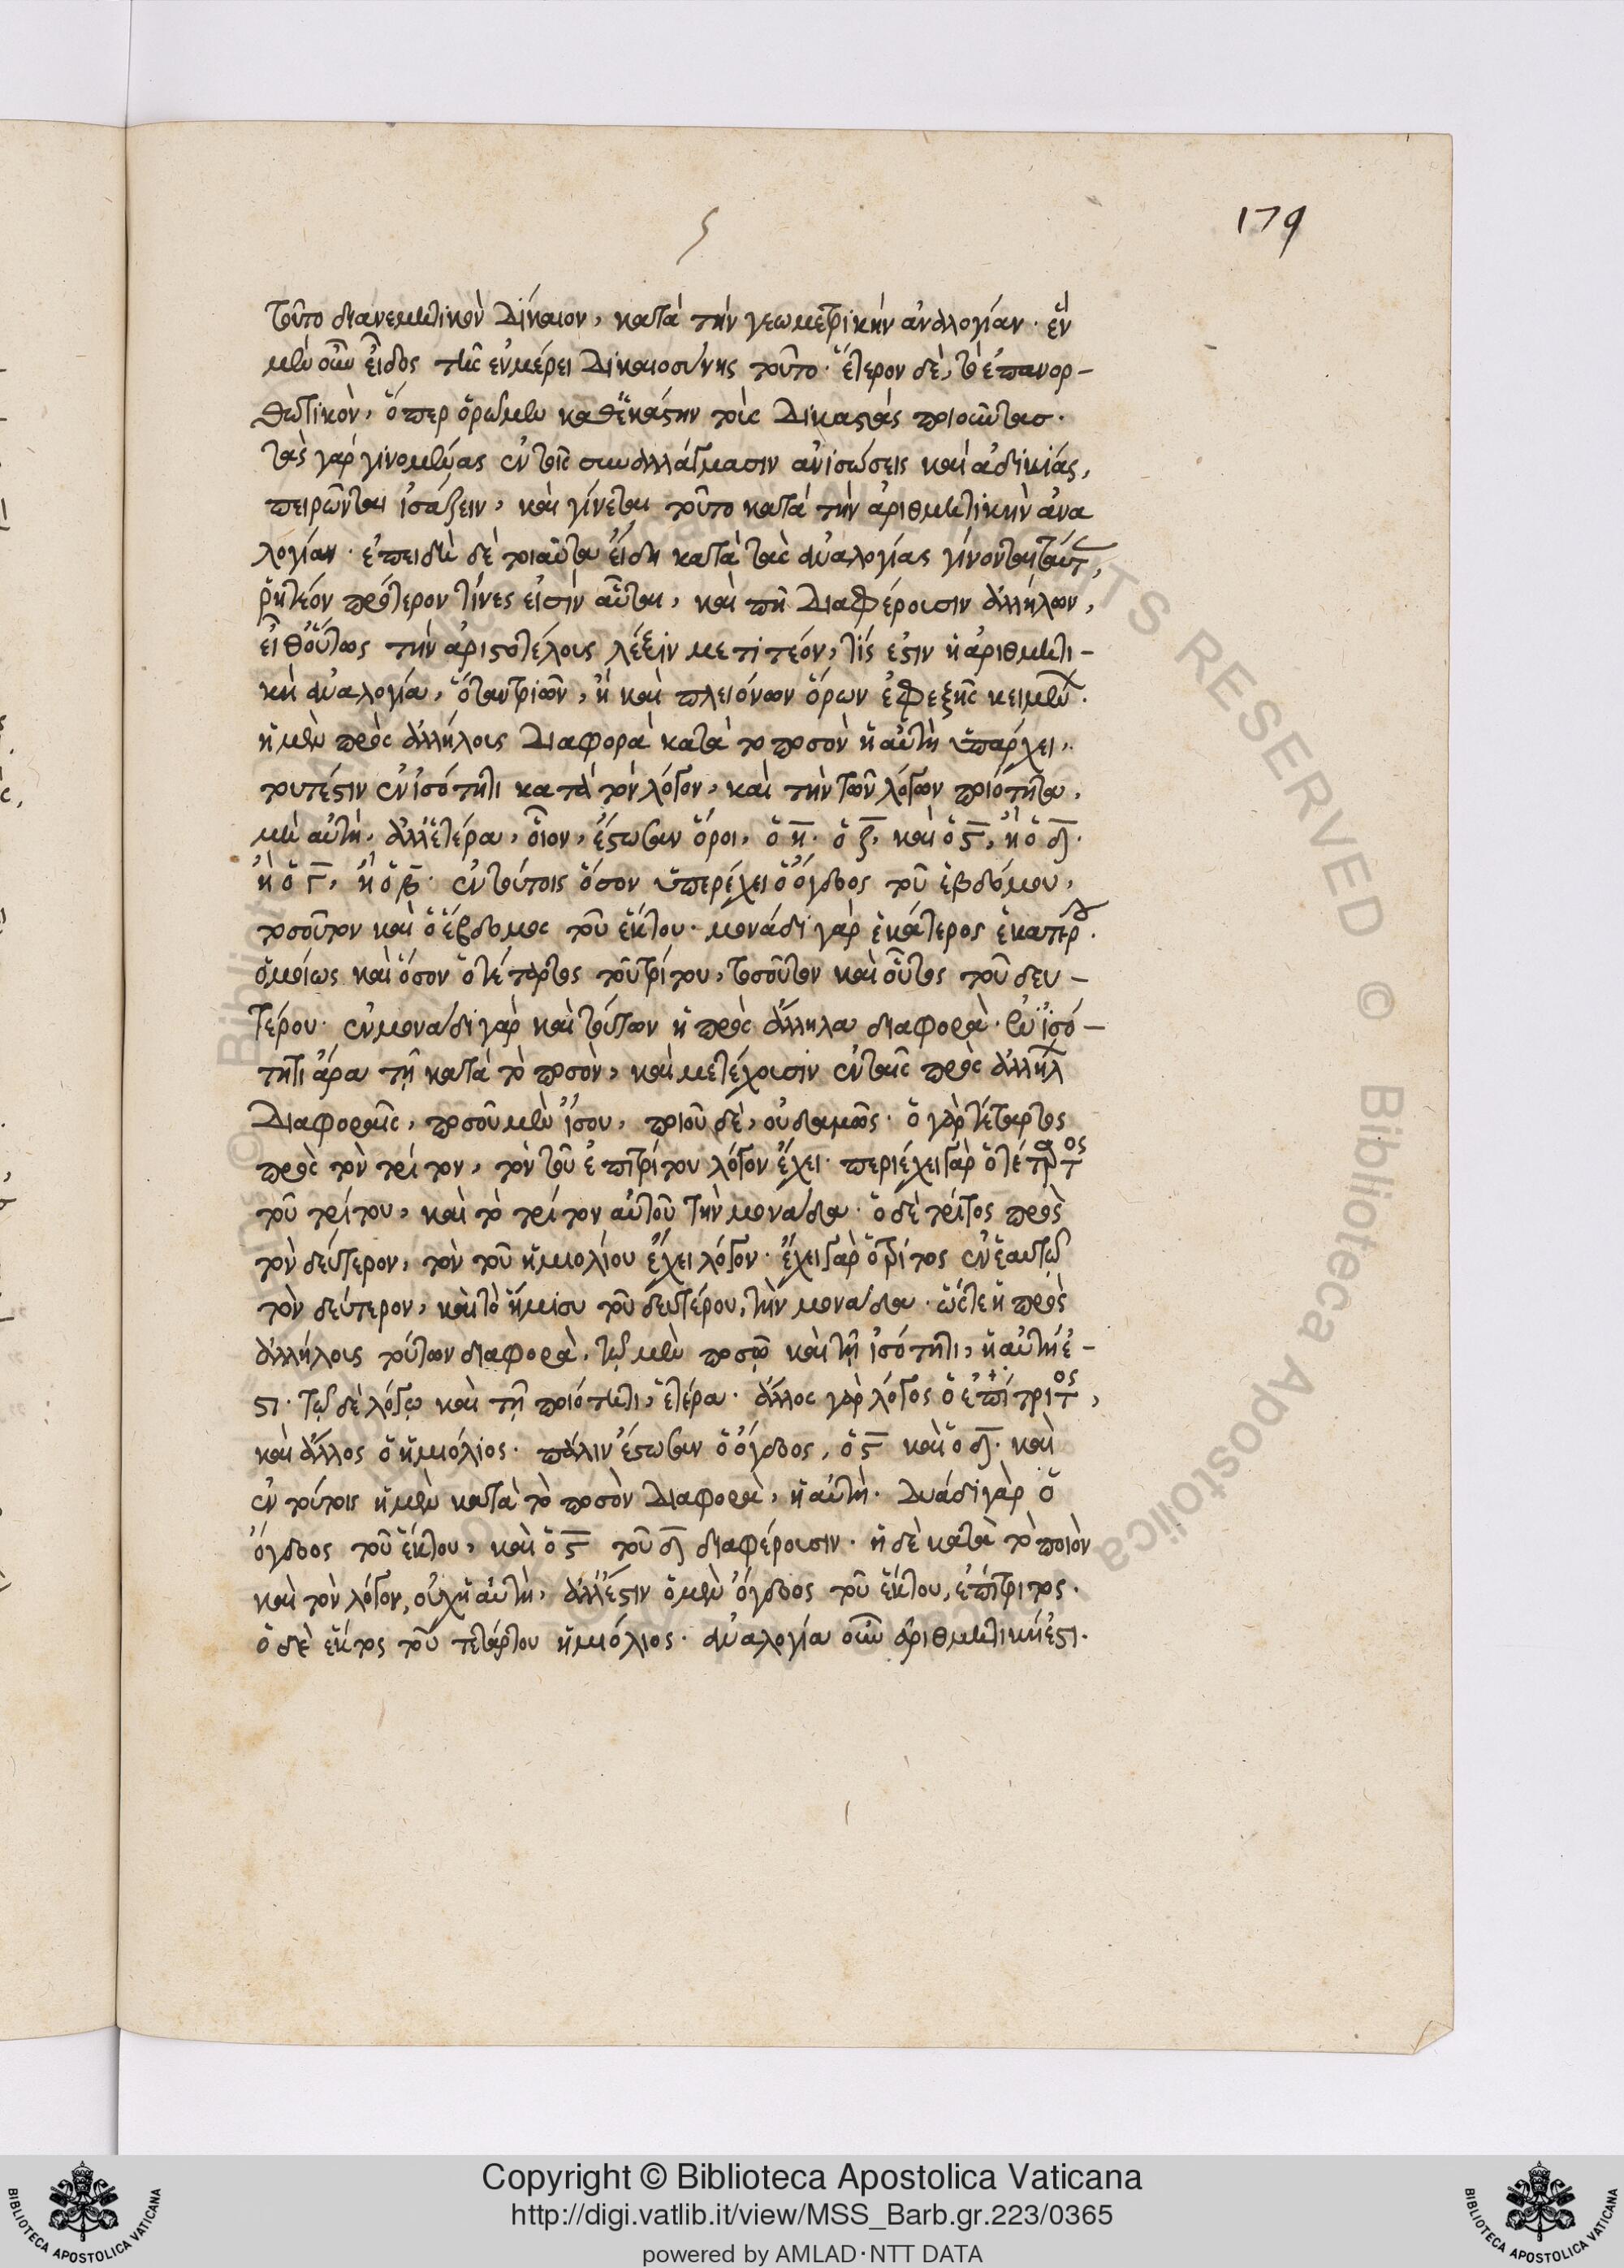 ς
179
τοῦτο διανεμητικὸν δίκαιον, κατὰ τὴν γεωμετρικὴν ἀναλογίαν. ἓν
μὲν οὖν εἶδος τῆς ἐν μέρει δικαιοσύνης τοῦτο. ἕτερον δὲ, τὸ ἐπανορ-
θωτικὸν, ὅπερ ὁρῶμεν καθ' ἑκάστην τοὺς δικαστὰς ποιοῦντας.
τὰς γὰρ γινομένας ἐν τοῖς συναλλάγμασιν ἀνισώσεις καὶ ἀδικίας,
πειρῶνται ἰσάζειν, καὶ γίνεται τοῦτο κατὰ τὴν ἀριθμητικὴν ἀνα
λογίαν. ἐπειδὴ δὲ τοιαῦτα εἴδη κατὰ τὰς ἀναλογίας γίνονται ταύτ,
ῥητέον πρότερον τίνες εἰσὶν αὗται, καὶ πῆ διαφέρουσιν ἀλλήλων,
εἶθ' οὕτως τὴν ἀριστοτέλους λέξιν μετιτέον, τίς ἐστιν ἡ ἀριθμητι-
κὴ ἀναλογία, ὅταν τριῶν, ἢ καὶ πλειόνων ὅρων ἐφεξῆς κειμέν.
ἡ μὲν πρὸς ἀλλήλους διαφορὰ κατὰ το ποσὸν ἡ αὐτὴ ὑπάρχει,
τουτέστιν ἐν ἰσότητι κατὰ τὸν λόγον, καὶ τὴν τῶν λόγων ποιότητα,
μὴ αὐτὴ, ἀλλ' ἑτέρα, οἷον, ἔστωσαν ὅροι, ὁ η. ὁ ζ, καὶ ὁ ς, ἢ ὁ δ.
ἢ ὁ γ, ἢ ὁ β. ἐν τούτοις ὅσον ὑπερέχει ὁ ὄγδοος τοῦ ἑβδόμου,
τοσοῦτον καὶ ὁ ἕβδομος τοῦ ἕκτου. μονάδι γὰρ ἑκάτερος ἑκατέρ.
ὁμοίως καὶ ὅσον ὁ τέταρτος τοῦ τρίτου, τοσοῦτον καὶ οὗτος τοῦ δευ-
τέρου. ἐν μονάδι γὰρ καὶ τούτων ἡ πρὸς ἄλληλα διαφορὰ. ἐν ἰσό-
τητι ἄρα τῇ κατὰ τὸ ποσὸν, καὶ μετέχουσιν ἐν ταῖς πρὸς ἀλλήλ
διαφοραῖς, ποσοῦ μὲν ἴσου, ποιοῦ δὲ, οὐδαμῶς. ὁ γὰρ τέταρτος
πρὸς τὸν τρίτον, τὸν τοῦ ἐπιτρίτου λόγον ἔχει. περιέχει γὰρ ὁ τέταρτος
τοῦ τρίτου, καὶ τὸ τρίτον αὐτοῦ τὴν μονάδα. ὁ δὲ τρίτος πρὸς
τὸν δεύτερον, τὸν τοῦ ἡμιολίου ἔχει λόγον. ἔχει γὰρ ὁ τρίτος ἐν ἑαυτῷ
τὸν δεύτερον, καὶ τὸ ἥμισυ τοῦ δευτέρου, τὴν μονάδα. ὥστε ἡ πρὸς
ἀλλήλους τούτων διαφορὰ, τῷ μὲν ποσῷ καὶ τῇ ἰσότητι, ἡ αὐτή ἐ-
στι. τῷ δὲ λόγῳ καὶ τῇ ποιότητι, ἑτέρα. ἄλλος γὰρ λόγος ὁ ἐπίτριτος,
καὶ ἄλλος ὁ ἡμιόλιος. πάλιν ἔστωσαν ὁ ὄγδοος, ὁ ς καὶ ὁ δ. καὶ
ἐν τούτοις ἡ μὲν κατὰ τὸ ποσὸν διαφορὰ, ἡ αὐτὴ. δυάδι γὰρ ὁ
ὄγδοος τοῦ ἕκτου, καὶ ὁ ς τοῦ δ διαφέρουσιν. ἡ δὲ κατὰ τὸ ποιὸν
καὶ τὸν λόγον, οὐχ ἡ αὐτὴ, ἀλλ' ἔστιν ὁ μὲν ὄγδοος τοῦ ἕκτου, ἐπίτριτος.
ὁ δὲ ἕκτος τοῦ τετάρτου ἡμιόλιος. ἀναλογία οὖν ἀριθμητική ἐστι.
Copyright © Biblioteca Apostolica Vaticana
http://digi.vatlib.it/view/MSS_Barb.gr.223/0365
powered by AMLAD·NTT DATA